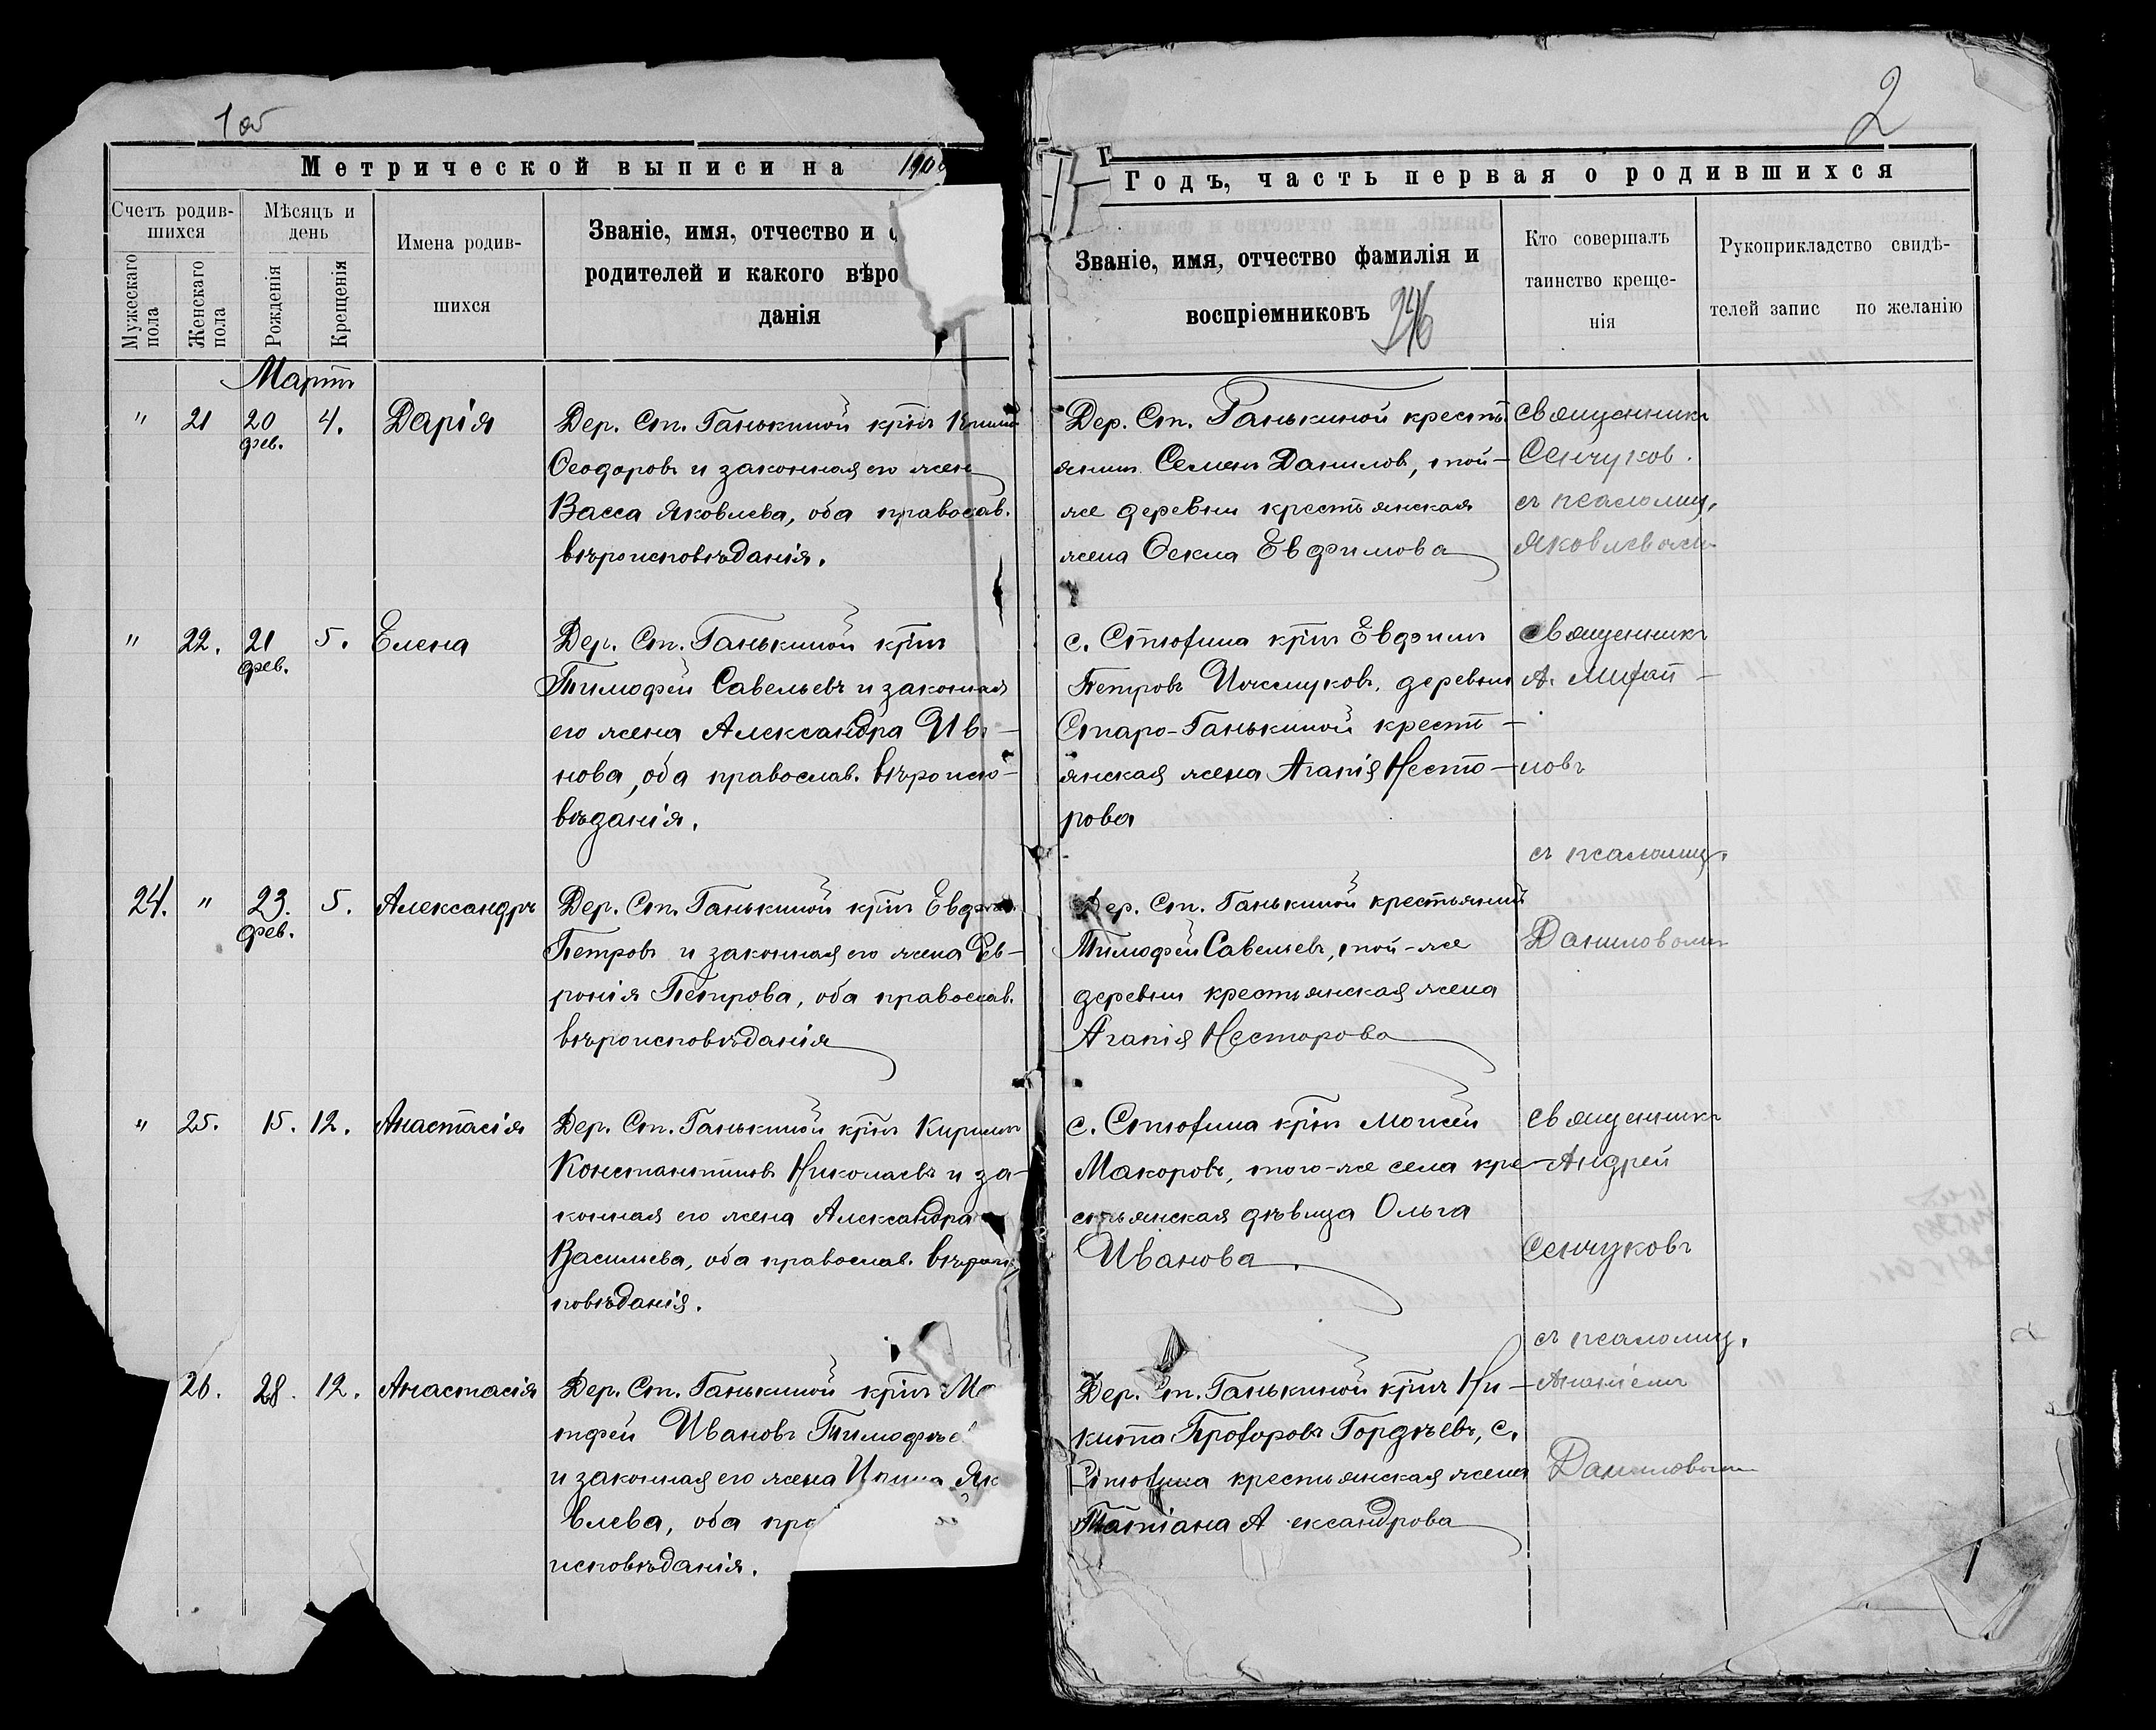 1об
2
Метрической выписи на 190
Годъ, часть первая о родившихся
Счетъ родив-
шихся
Мѣсяцъ и
день
Мужескаго
пола
Женскаго
пола
Рожденія
Крещенія
Имена родив-
шихся
Званіе, имя, отчество и
родителей и какого вѣро
данія
Званіе, имя, отчество фамилія и
воспріемниковъ
Кто совершалъ
таинство креще-
нія
Рукоприкладство свидѣ-
телей запис по желанію
Мартъ
" 21 20 фев. 4. Дарія
Дер. Ст. Ганькиной кр̃нъ
Ѳеодоровъ и законная его жена
Васса Яковлева, оба православ.
вѣроисповѣданія.
Дер. Ст. Ганькиной кресть
янинъ Семенъ Данилов, той-
же деревни крестьянская
жена Ѳекла Евфимова
священникъ
Сенчуков.
съ псаломщ.
Яковлевымъ
" 22. 21 фев. 5. Елена
Дер. Ст. Ганькиной кр̃нъ
Тимофей Савельевъ и законная
его жена Александра Ива-
нова, оба православ. вѣроиспо-
вѣданія.
с. Стюхина кр̃нъ Евфимъ
Петровъ деревни
Старо-Ганькиной кресть-
янская жена Агапія Несто-
рова
священникъ
А.
новъ
съ псаломщ.
Даниловымъ
24. " 23. фев. 5. Александръ
Дер. Ст. Ганькиной кр̃нъ Евфим.
Петровъ и законная его жена Фев-
ронія Петрова, оба православ.
вѣроисповѣданія
Дер. Ст. Ганькиной крестьянинъ
Тимофей Савельевъ, той-же
деревни крестьянская жена
Агапія Несторова
" 25. 15. 12. Анастасія
Дер. Ст. Ганькиной кр̃нъ Кириллъ
Константиновъ Николаевъ и за-
конная его жена Александра
Васильева, оба православ. вѣроис
повѣданія.
с. Стюхина кр̃нъ Моисей
Макоровъ, того-же села кре-
стьянская дѣвица Ольга
Иванова.
священникъ
Андрей
Сенчуковъ
съ псаломщ.
Ананіемъ
Даниловымъ
26. 28. 12. Анастасія
Дер. Ст. Ганькиной кр̃нъ Ма
тфей Ивановъ Тимофѣе
и законная его жена Як
влева, оба пра
исповѣданія.
Дер. Ст. Ганькиной кр̃нъ Ни-
кита Прохоровъ Гордѣевъ, с.
Стюхина крестьянская жена
Татіана А ександрова